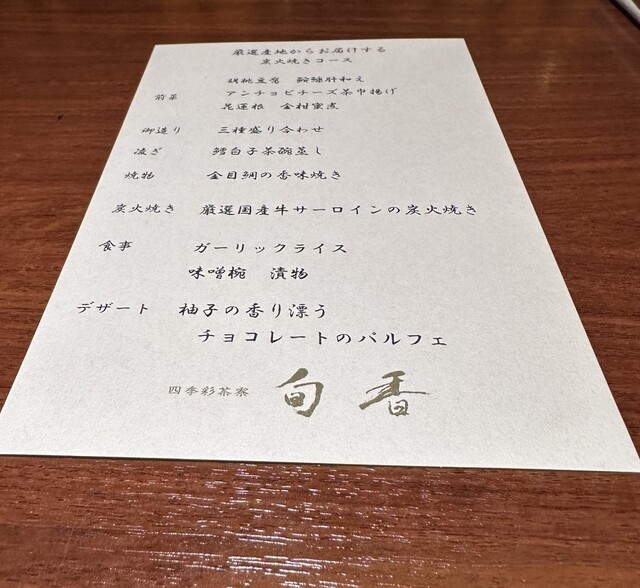 厳選産地からお届けする
炭火焼きコース
前菜 胡桃豆腐 鮟鱇肝和え
アンチョビチーズ茶巾揚げ
花蓮根 金柑蜜煮
御造り 三種盛り合わせ
凌ぎ 鱈白子茶碗蒸し
焼物 金目鯛の香味焼き
炭火焼き 厳選国産牛サーロインの炭火焼き
食事 ガーリックライス
味噌椀 漬物
デザート 柚子の香り漂う
チョコレートのパルフェ
四季彩茶寮 旬香